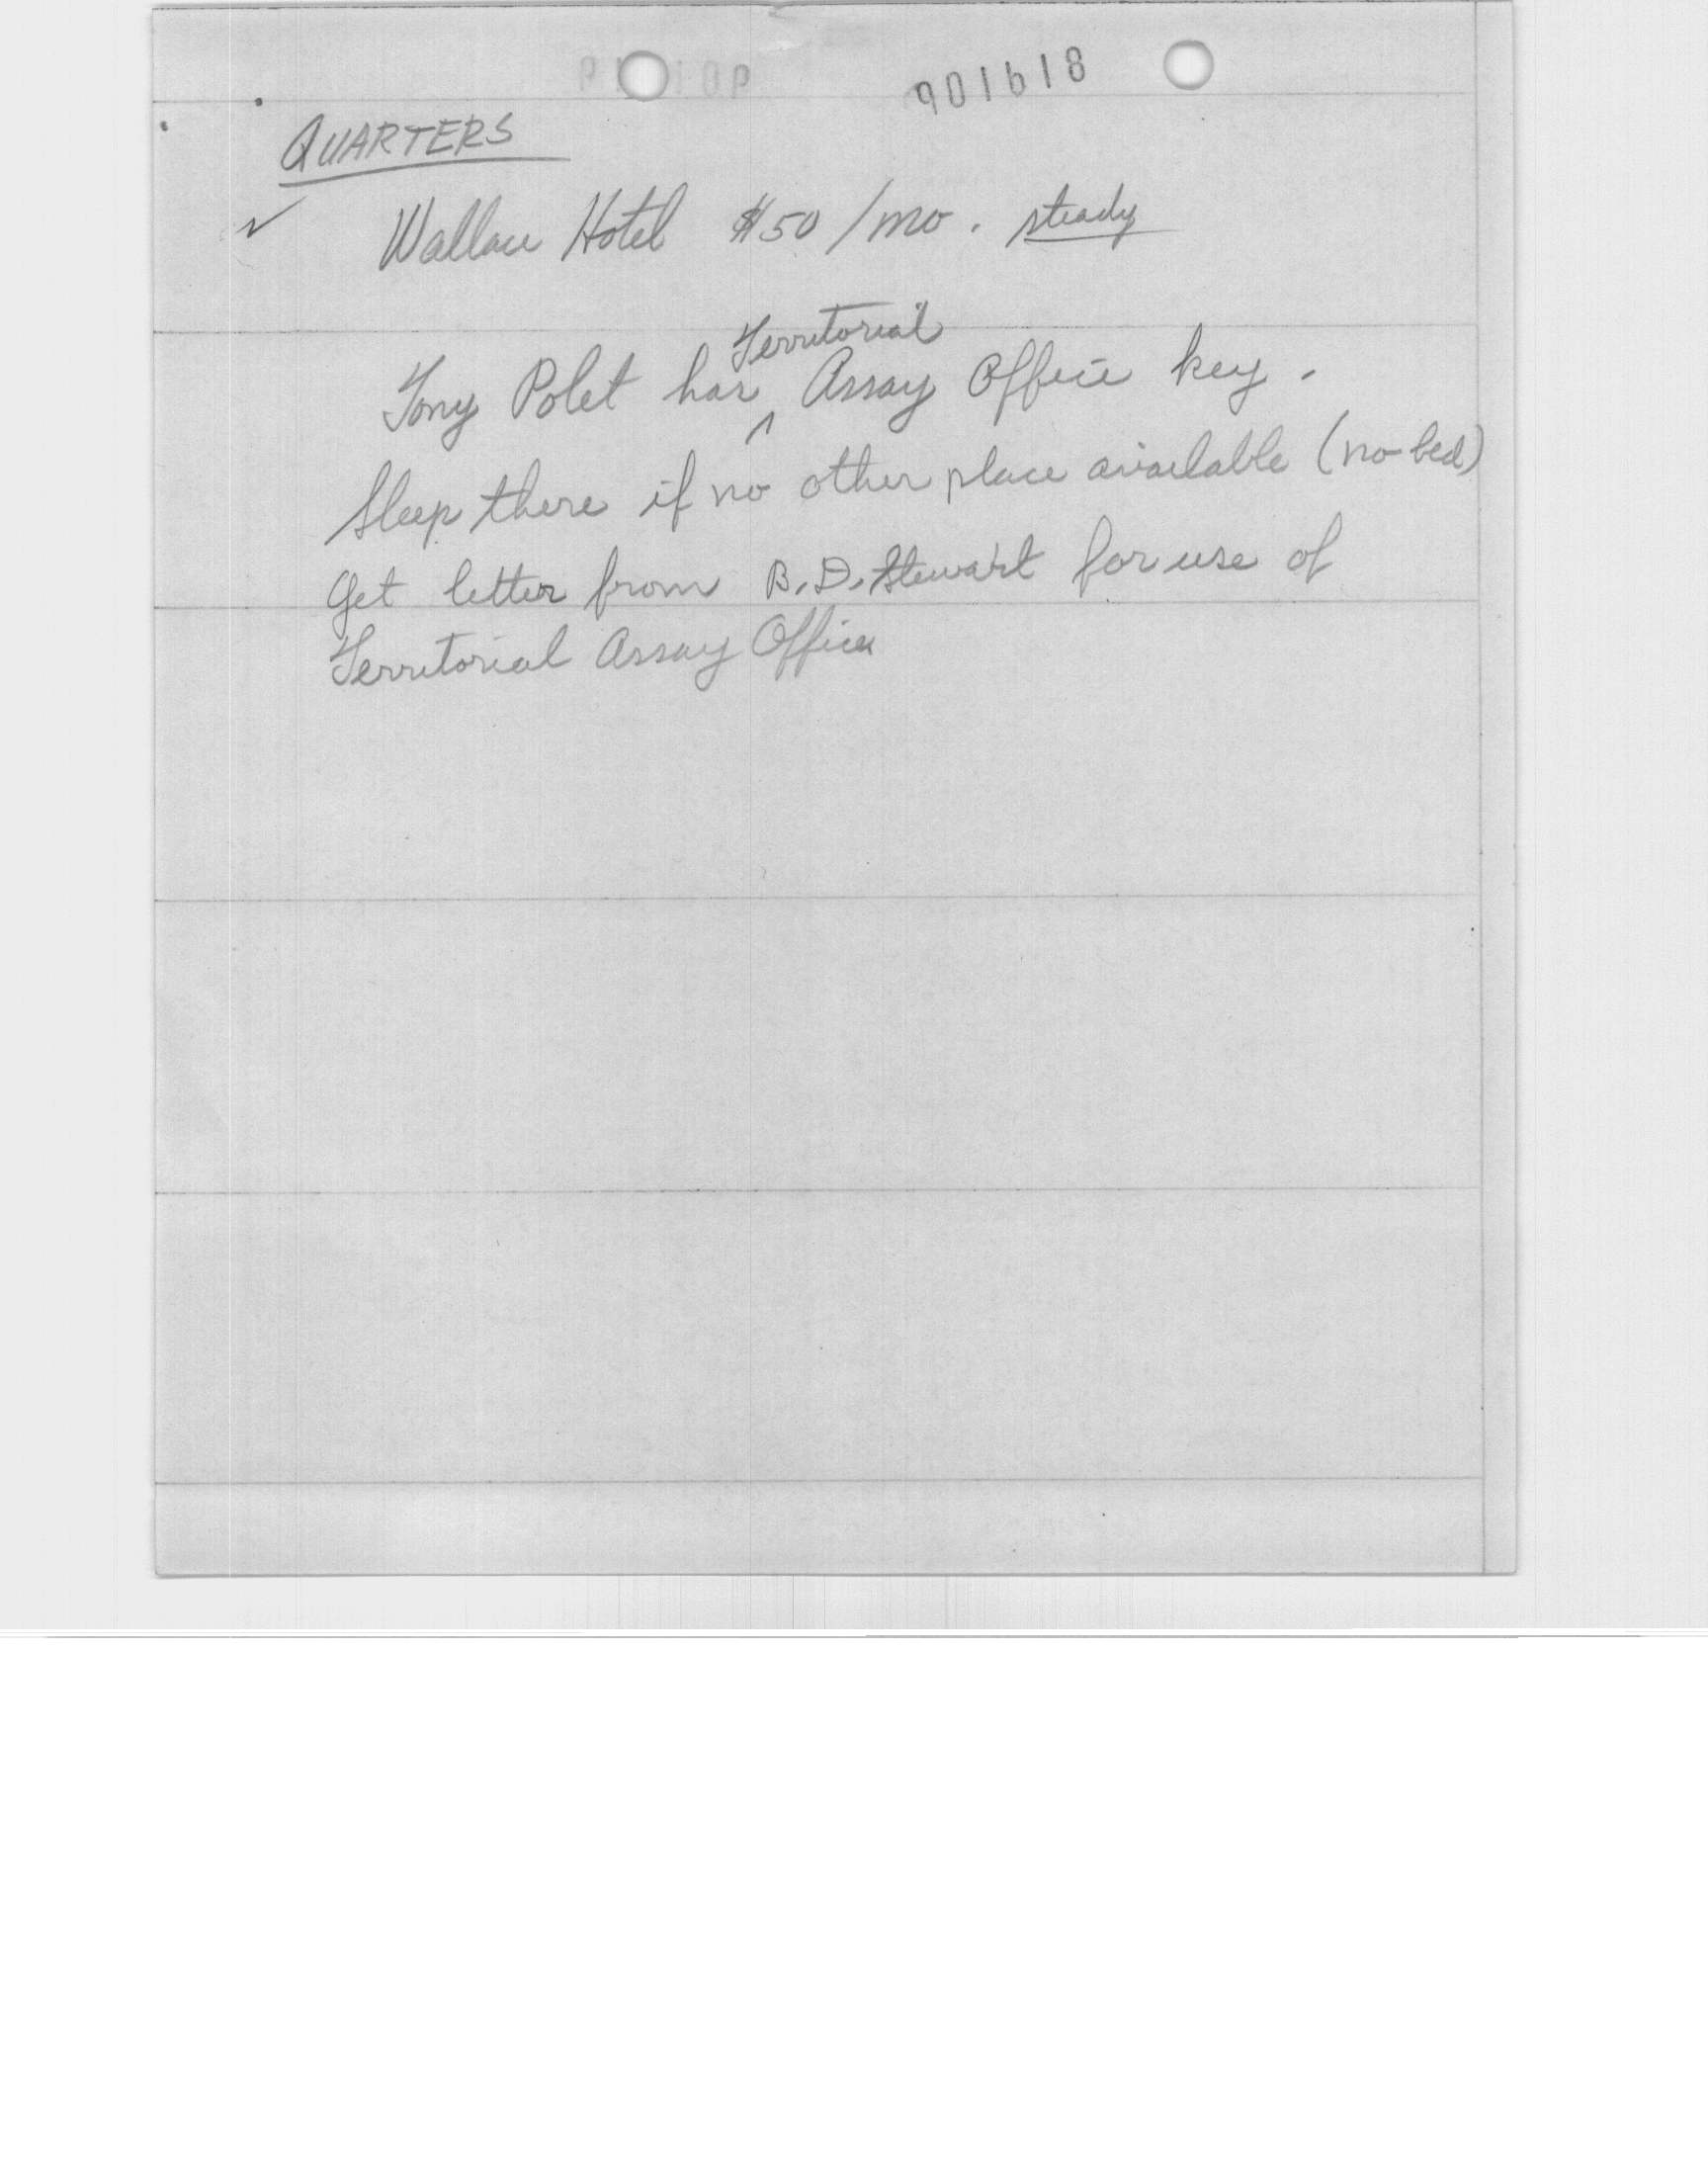 901618
QUARTERS
✓ Wallace Hotel $50/mo. steady
Territorial
Tony Polet has ^ Assay Office key.
Sleep there if no other place available (no bed)
Get letter from B.D. Stewart for use of
Territorial Assay Office